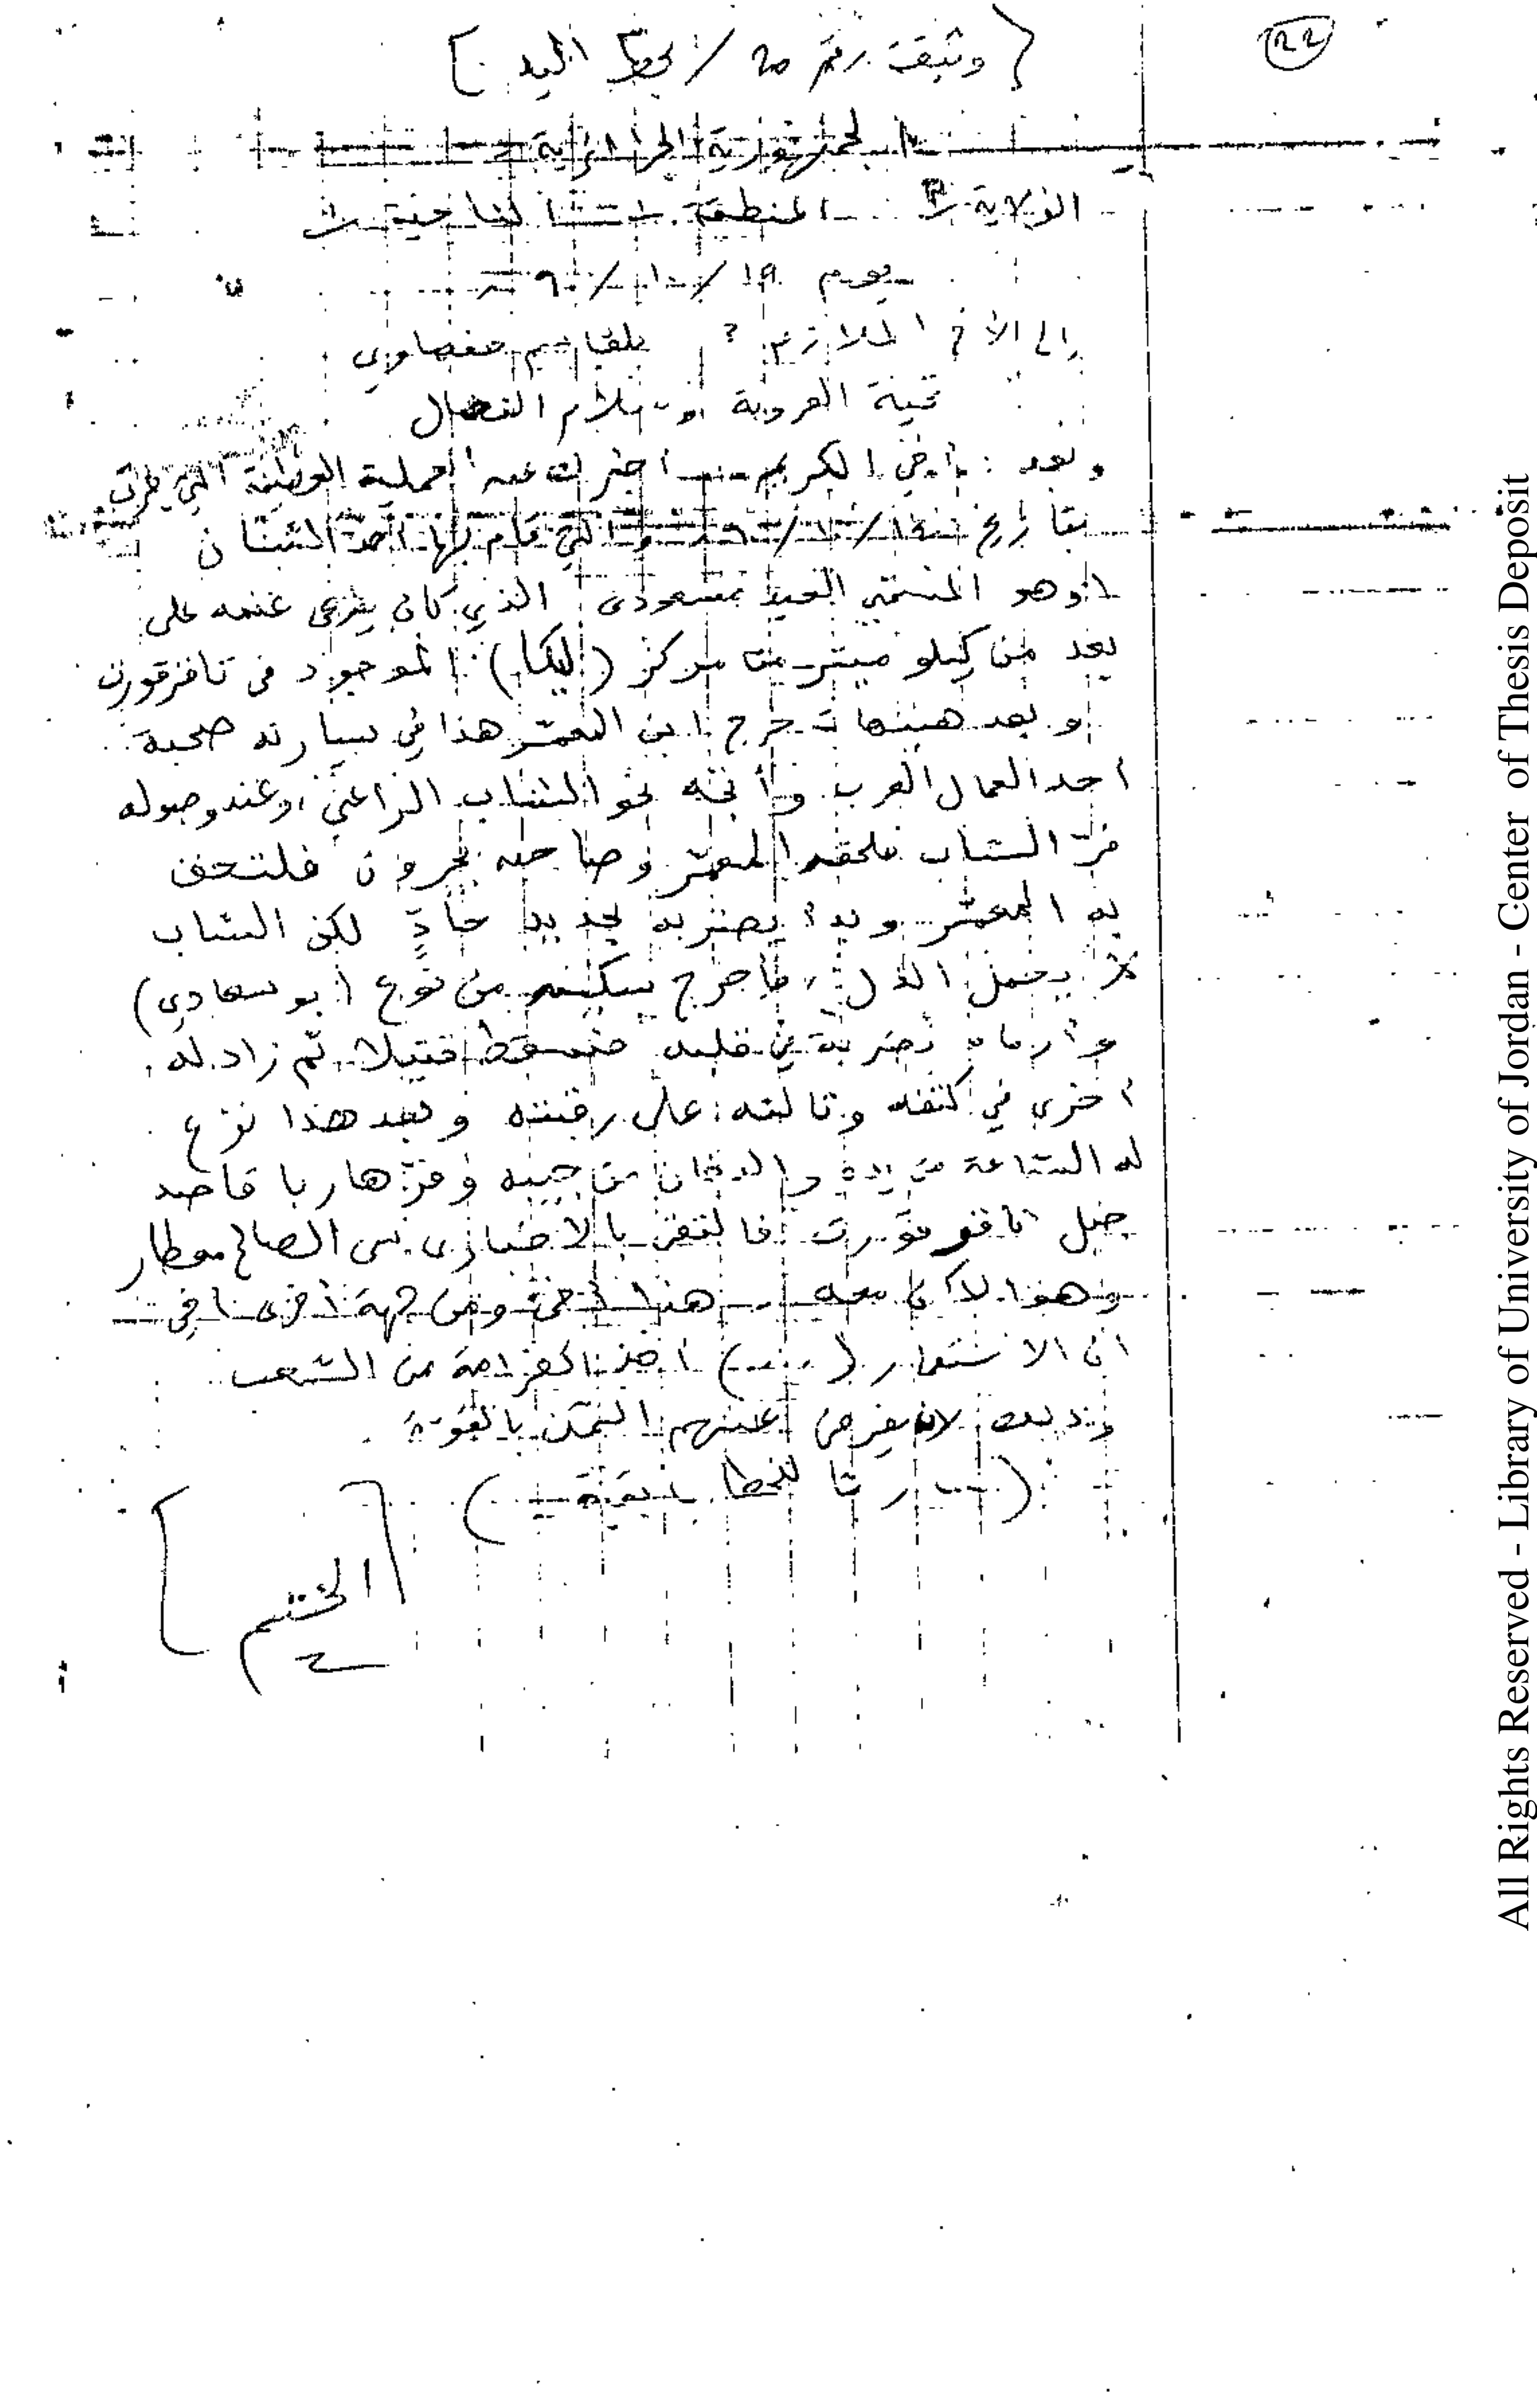 22
{ وثيقة رقم ٢٥ / بخط اليد ]
الجمهورية الجزائرية
الولاية المنطقة الناحية
يوم ١٩/١٠/٦٠
إلى الأخ الملازم بلقاسم
تحية العروبة وسلام النضال
وبعد : يا أخي الكريم أخبرك عن العملية التي
بتاريخ والتي قام بها أحد الشبان
وهو المسمى العيد مسعودي الذي كان يرعى غنمه على
بعد من كيلو ميتر من مركز (ليكا) الموجود في
وبعد خرج ابن المعمر هذا في سيارته صحبة
أحد العمال العرب وأتجه نحو الشاب الراعي، وعند وصوله
فر الشاب فلحقه المعمر وصاحبه يجرون فلتحق
به المعمر وبدأ يضربه بحديد حادّ لكن الشاب
لم يحمل الذل، فأخرج سكينه من نوع (بو سعادي)
وأرماه بضربة في قلبه فسقط قتيلا ثم زاد له
أخرى في كتفه وثالثه على رقبته وبعد هذا نزع
له الساعة من يده والدخان من جيبه وفرّ هاربا قاصد
جبل فالتقى بالاخباري سي الصالح معطار
وهو الآن معه .. هذا أخي ومن جهة أخرى أخي
ان الاستعمار (....) أخذ الغرامة من الشعب
وذلك لان عليهم بالقوة
( للخطاب بقية )
[ الختم ]
All Rights Reserved - Library of University of Jordan - Center of Thesis Deposit